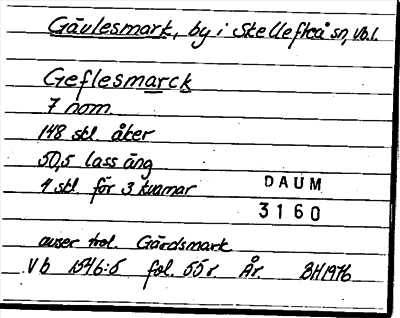 Gävlesmark, by i Skellefteå sn, Vb.l.
Geflesmarck
7 nom.
148 skl. åker
50,5 lass äng
1 skl. för 3 kvarnar
DAUM
3160
avser trol. Gärdsmark
Vb 1546:5 fol. 55 r. År. BH1976